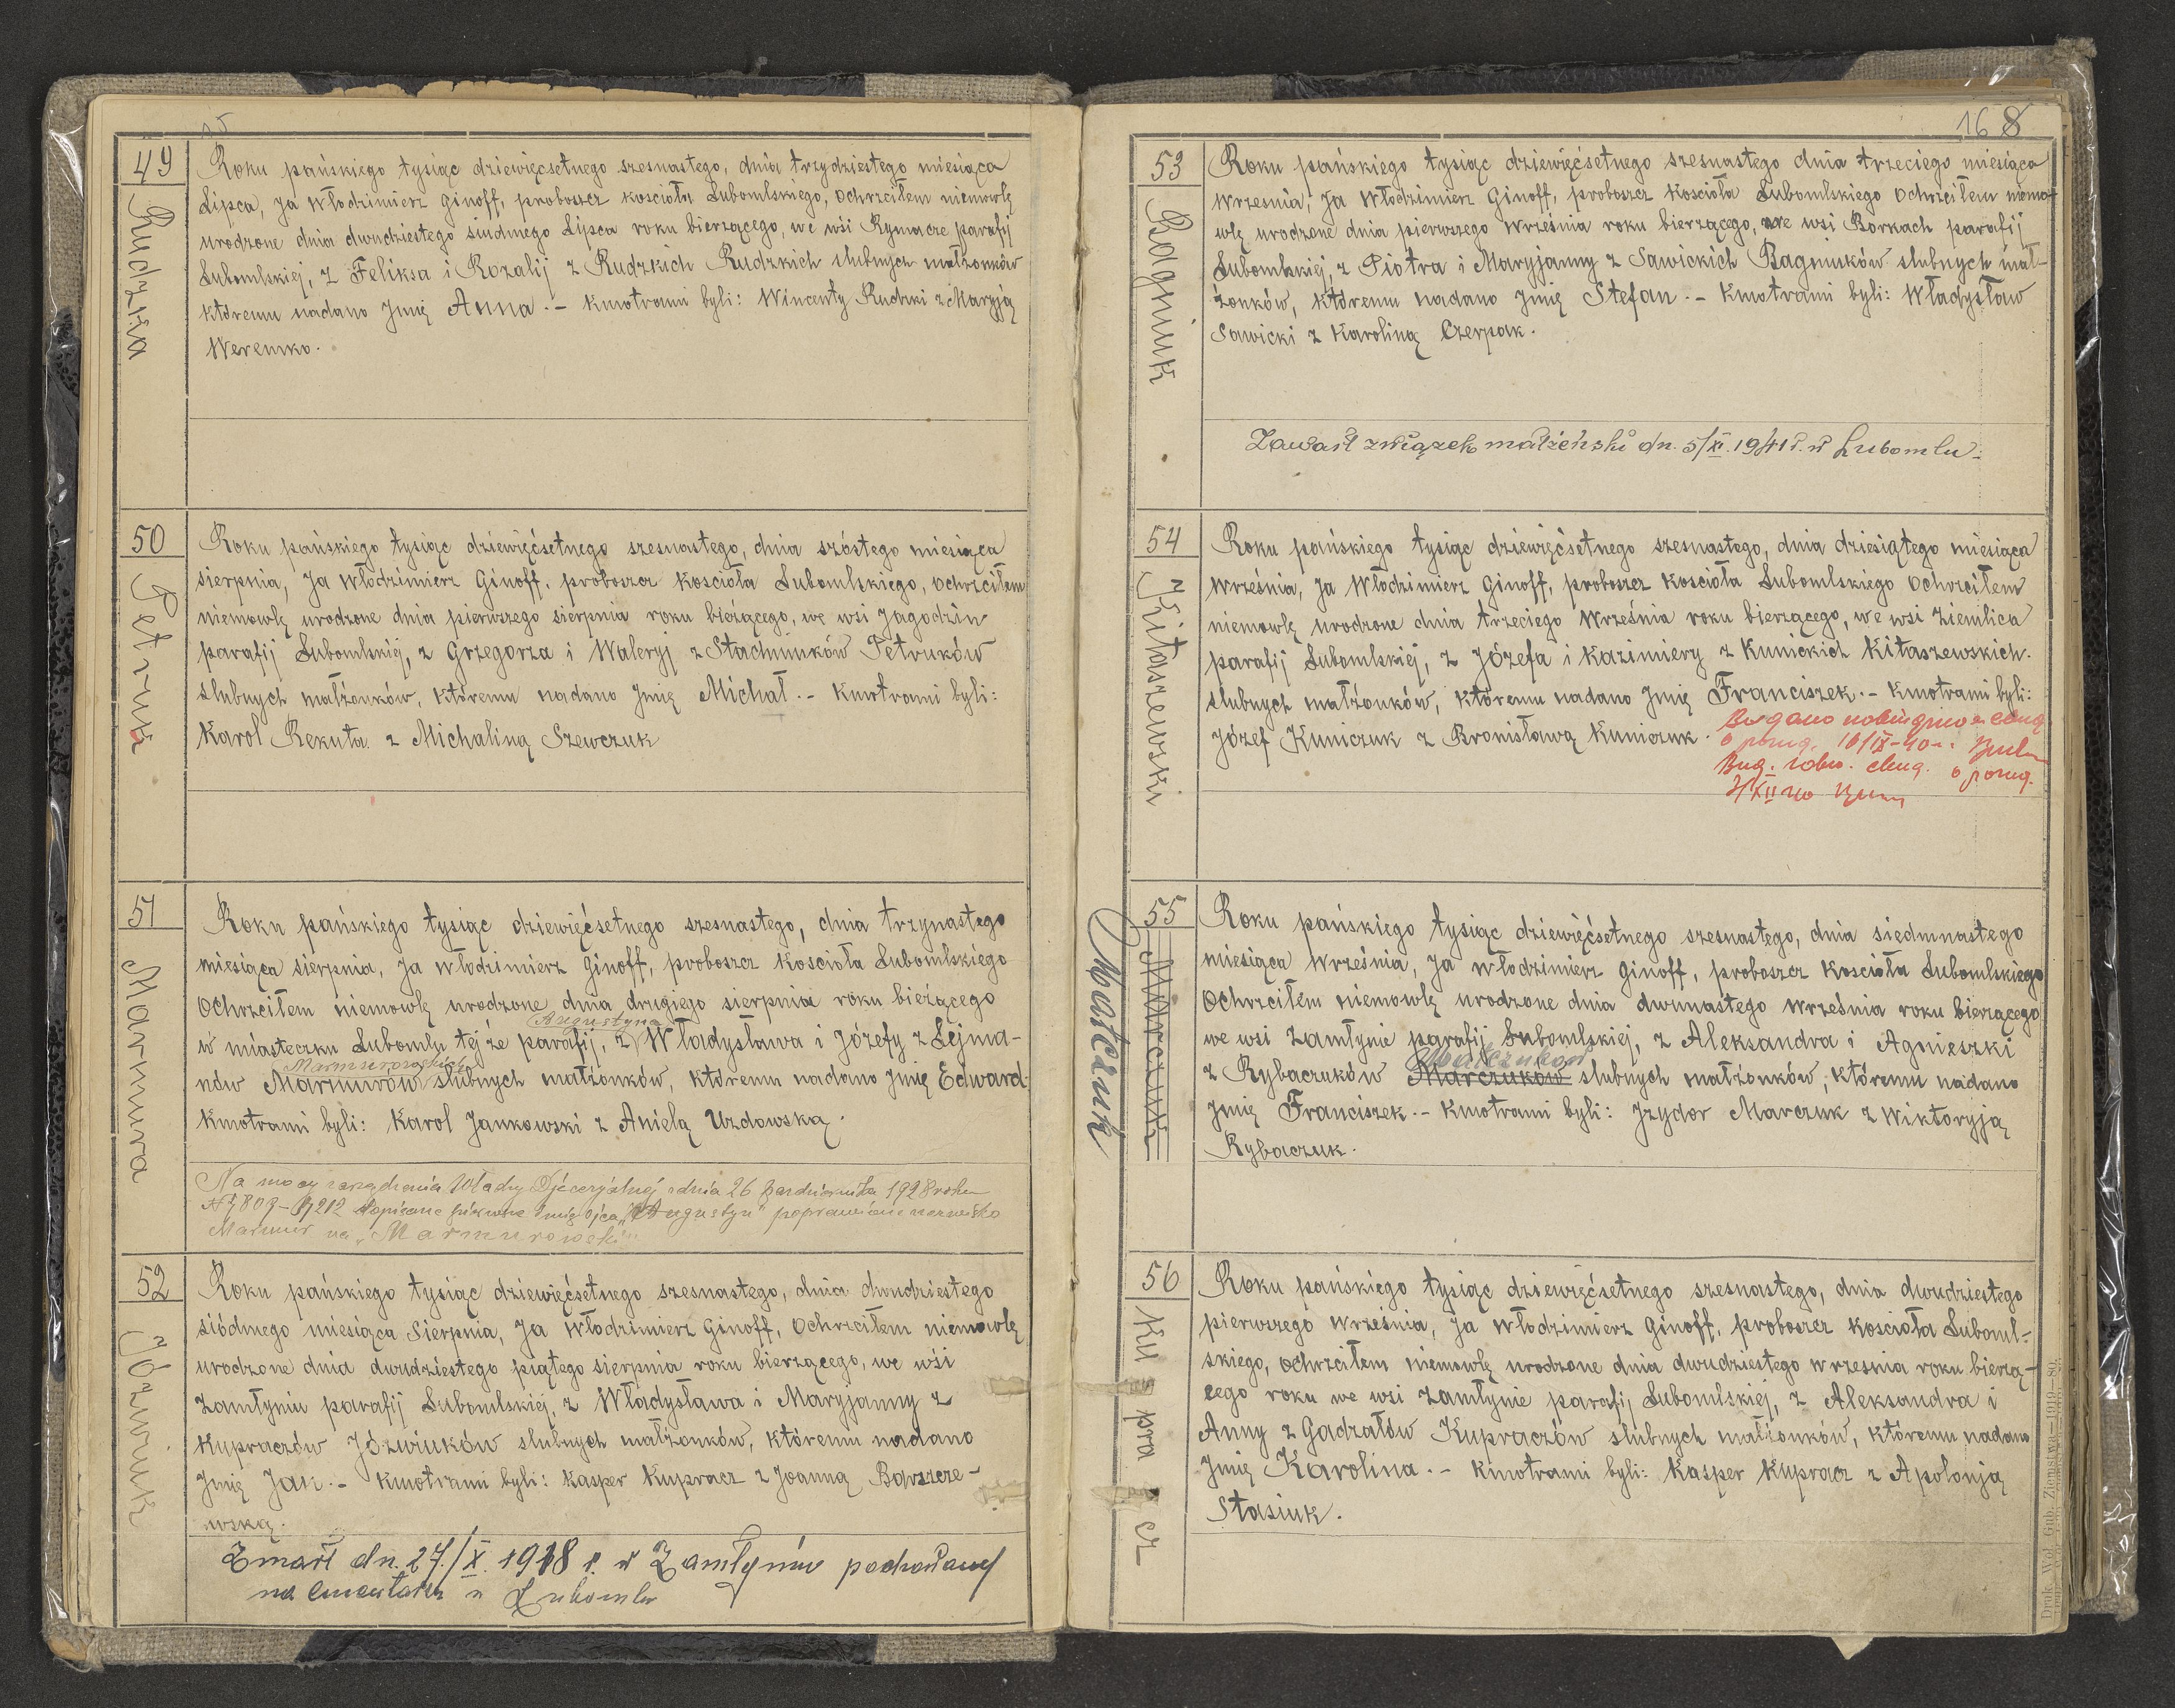 49
Rudzka
Roku pańskiego tysiąc dziewięcsetnego szesnastego, dnia trzydziestego miesiąca
Lipca, Ja Włodzimierz Ginoff, proboszcz kościoła Lubomlskiego, Ochrzciłem niemowlę
urodzone dnia dwudziestego siudmego Lipca roku bierzącego, we wśi Rymacze parafij
Lubomlskiej, z Feliksa i Rozalij z Rudzkich Rudzkich slubnych małżonków
któremu nadano Jmię Anna. – Kmotrami byli: Wincenty Rudzki z Maryją
Weremko.
50
Petruk
Roku pańskiego tysiąc dziewięćsetnego szesnastego, dnia szóstego miesiąca
sierpnia, Ja Włodzimierz Ginoff, proboszcz kościoła Lubomlskiego, Ochrzciłem
niemowlę urodzone dnia pierwszego sierpnia roku bieżącego, we wsi Jagodzin
parafij Lubomlskiej, z Grzegorza i Waleryj z Stachniuków Petruków
slubnych małżonków, któremu nadano Jmię Michał. – Kmotrami byli:
Karol Rekuta z Michaliną Szewczuk
51
Marmura
Roku pańskiego tysiąc dziewięćsetnego szesnastego, dnia trzynastego
miesiąca sierpnia, Ja Włodzimierz Ginoff, proboszcz Kościoła Lubomlskiego
Ochrzciłem niemowlę urodzone dnia drugiego sierpnia roku bieżącego
Augustyna
w miasteczku Lubomlu tej że parafij, z Władysława i Józefy z Lejma-
Marmurowskich
nów Marmurów slubnych małżonków, któremu nadano Jmię Edward.
Kmotrami byli: Karol Jankowski z Anielą Uzdowską.
Na mocy rozporządzenia Władzy Djecezjalnej z dnia 26 października 1928 roku
dopisane imię ojca „Augustyn" poprawione nazwisko
Marmur na „Marmurowski"
52
Józwiuk
Roku pańskiego tysiąc dziewięćsetnego szesnastego, dnia dwudziestego
siódmego miesiąca Sierpnia, Ja Włodzimierz Ginoff, Ochrzciłem niemowlę
urodzone dnia dwudziestego piątego sierpnia roku bierzącego, we wśi
Zamłyniu parafij Lubomlskiej, z Władysława i Maryjanny z
Kupraczów Józwiuków slubnych małżonków, któremu nadano
Jmię Jan. – Kmotrami byli: Kasper Kupracz z Joanną Barszcze-
wską.
Zmarł dn. 27/X. 1918 r. w Zamłyniu pochowany
na cmentarzu w Lubomlu
168
53
Bagniuk
Roku pańskiego tysiąc dziewięćsetnego szesnastego dnia trzeciego miesiąca
Wrzesnia, Ja Włodzimierz Ginoff, proboszcz Kościoła Lubomlskiego Ochrzciłem niemo-
wlę urodzone dnia pierwszego Wrzesnia roku bierzącego, we wsi Borkach parafij
Lubomlskiej, z Piotra i Maryjanny z Sawickich Bagniuków slubnych mał-
żonków, któremu nadano Jmię Stefan. – Kmotrami byli: Władysław
Sawicki z Karoliną Czerpak.
Zawarł związek małżeński dn. 5/XI. 1941 r. w Lubomlu.
54
Kitaszewski
Roku pańskiego tysiąc dziewięćsetnego szesnastego, dnia dziesiątego miesiąca
Września, Ja Włodzimierz Ginoff, proboszcz kościoła Lubomlskiego Ochrzciłem
niemowlę urodzone dnia trzeciego Września roku bierzącego, we wsi Ziemlica
parafij Lubomlskiej, z Józefa i Kazimiery z Kunickich Kitaszewskich.
slubnych małżonków, któremu nadano Jmię Franciszek. – Kmotrami byli:
Józef Kuniczuk z Bronisławą Kuniczuk.
55
Marczuk
Matczuk
Roku pańskiego tysiąc dziewięćsetnego szesnastego, dnia siedmnastego
miesiąca Września, Ja Włodzimierz Ginoff, proboszcz Kościoła Lubomlskiego
Ochrzciłem niemowlę urodzone dnia dwunastego Września roku bierzącego
we wsi Zamłynie parafij Lubomlskiej, z Aleksandra i Agnieszki
Matczuków
z Rybaczuków Marczuków slubnych małżonków, któremu nadano
Jmię Franciszek. – Kmotrami byli: Jzydor Marczuk z Wiktoryją
Rybaczuk.
56
Kupracz
Roku pańskiego tysiąc dziewięćsetnego szesnastego, dnia dwudziestego
pierwszego Września, Ja Włodzimierz Ginoff, proboszcz kościoła Luboml-
skiego, Ochrzciłem niemowlę urodzone dnia dwudziestego wrzesnia roku bierzą-
cego roku we wsi Zamłynie parafij Lubomlskiej, z Aleksandra i
Anny z Gadzałów Kupraczów slubnych małżonków, któremu nadano
Jmię Karolina. – Kmotrami byli: Kasper Kupracz z Apolonją
Stasiuk.